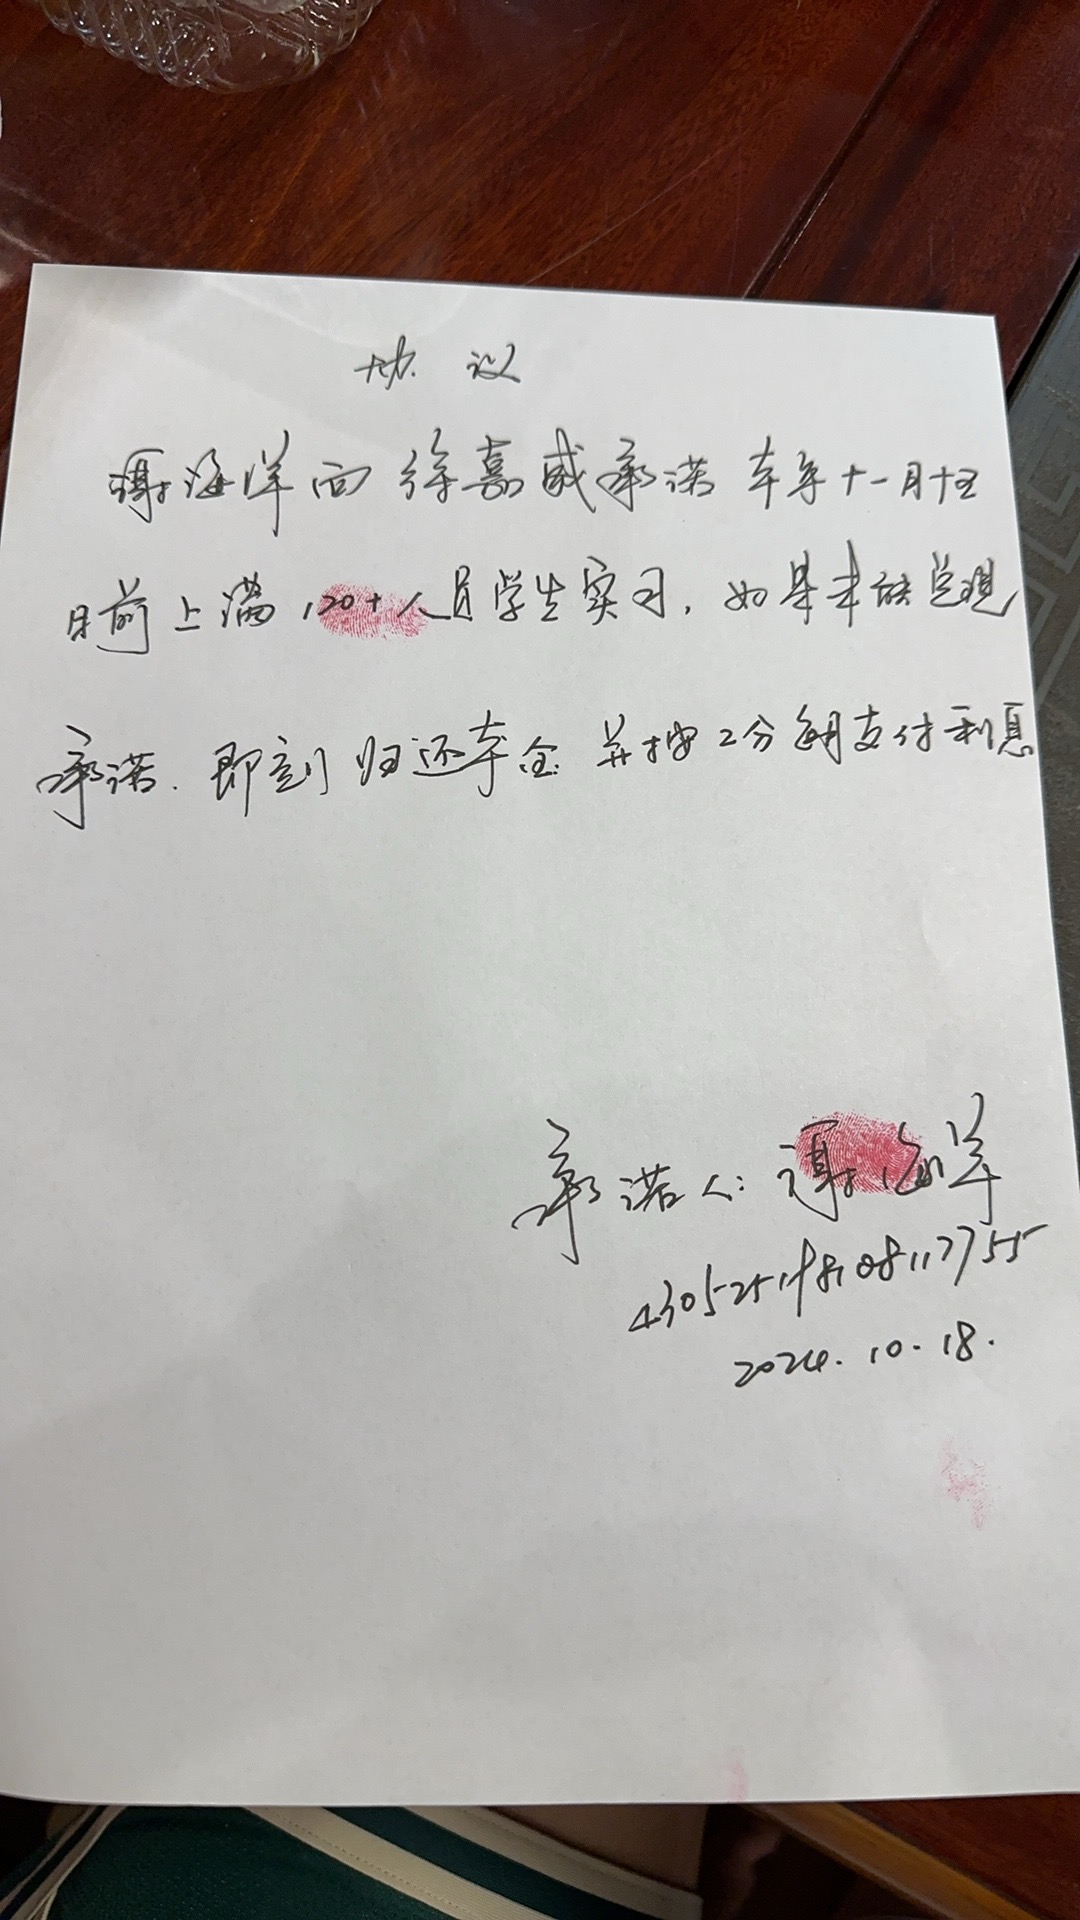 协议
谭海洋向徐嘉威承诺本年十一月十五
日前上满120+人员学生实习，如果未能兑现
承诺．即刻归还本金并按2分每月支付利息
承诺人：谭海洋
2024.10.18.